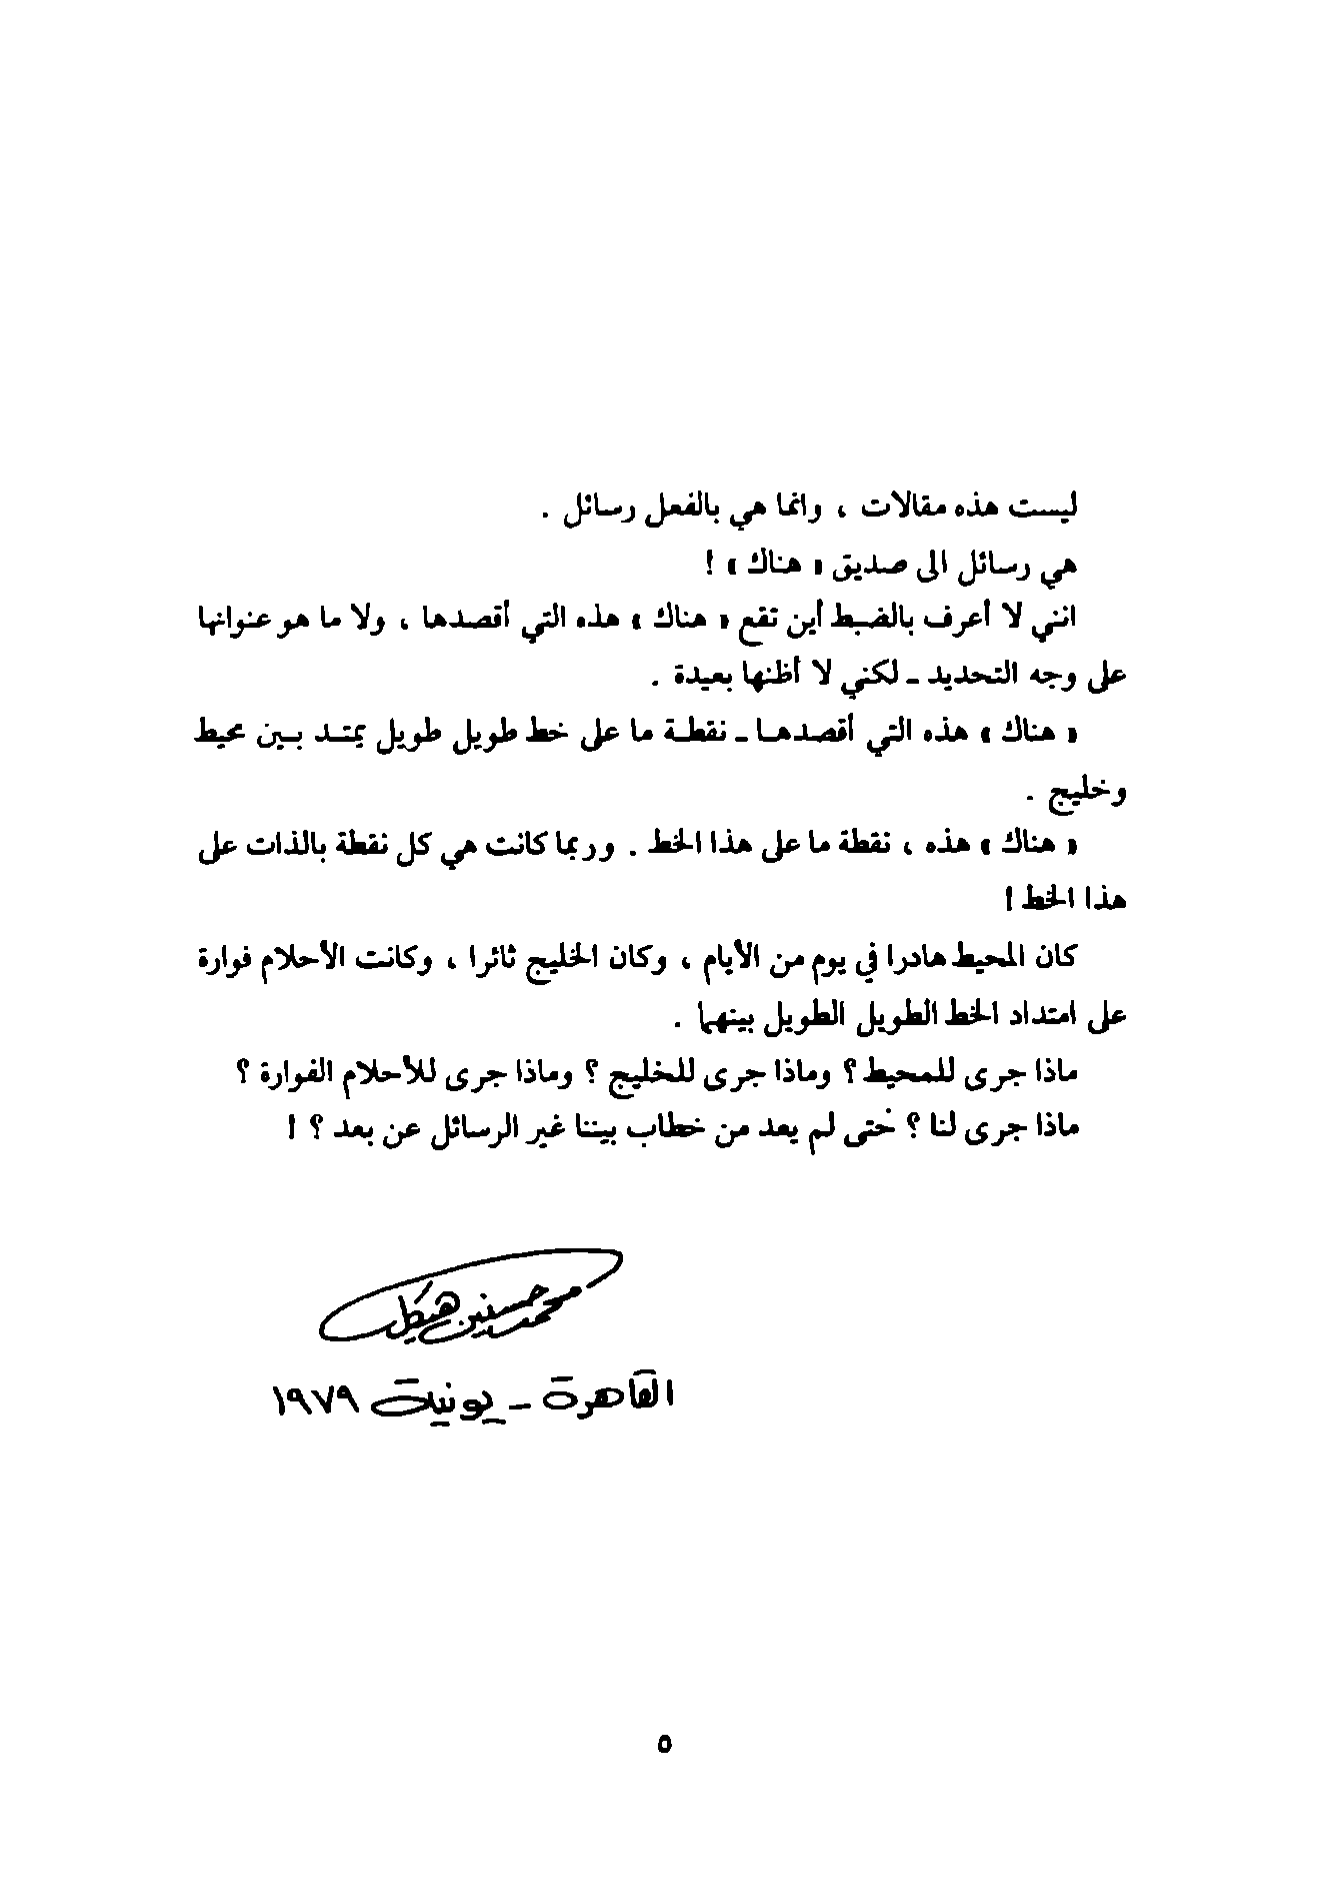 ليست هذه مقالات ، وانما هي بالفعل رسائل .
هي رسائل الى صديق « هناك » !
انني لا أعرف بالضبط أين تقع « هناك » هذه التي أقصدها ، ولا ما هو عنوانها
على وجه التحديد ـ لكني لا أظنها بعيدة .
« هناك » هذه التي أقصدهـا ـ نقطـة ما على خط طويل طويل يمتـد بـين محيط
وخليج .
« هناك » هذه ، نقطة ما على هذا الخط . وربما كانت هي كل نقطة بالذات على
هذا الخط !
كان المحيط هادرا في يوم من الأيام ، وكان الخليج ثائرا ، وكانت الأحلام فوارة
على امتداد الخط الطويل الطويل بينهما .
ماذا جرى للمحيط ؟ وماذا جرى للخليج ؟ وماذا جرى للأحلام الفوارة ؟
ماذا جرى لنا ؟ حتى لم يعد من خطاب بيننا غير الرسائل عن بعد ؟ !
محمد حسنين هيكل
القاهرة ـ يونية ١٩٧٩
٥